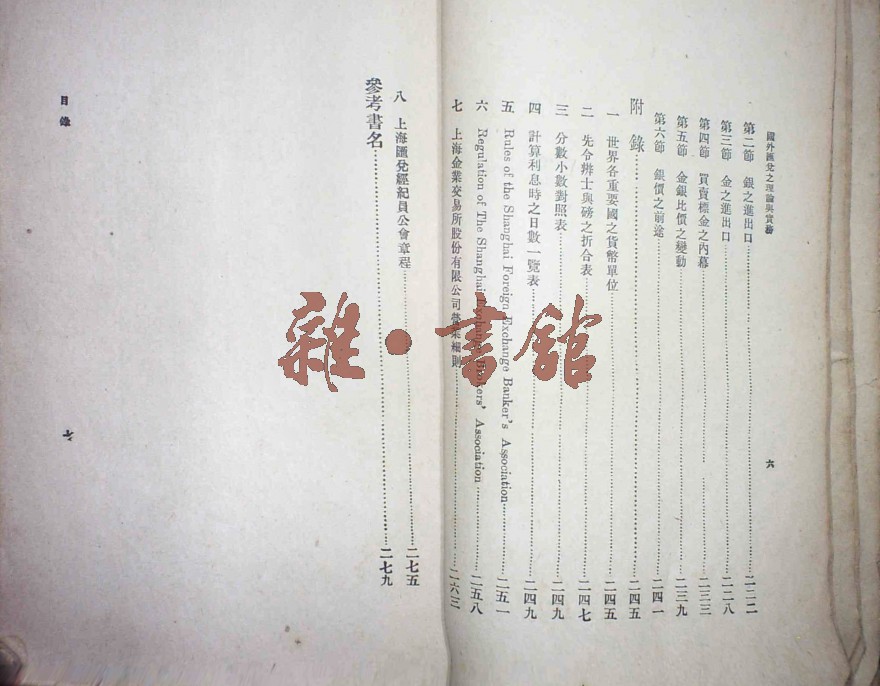 國外匯兌之理論與實務
六
第二節 銀之進出口……二二二
第三節 金之進出口……二二八
第四節 買賣標金之內幕……二三三
第五節 金銀比價之變動……二三九
第六節 銀價之前途……二四一
附錄……二四五
一 世界各重要國之貨幣單位……二四五
二 先令辨士與磅之折合表……二四七
三 分數小數對照表……二四九
四 計算利息時之日數一覽表……二四九
五 Rules of the Shanghai Foreign Exchange Banker's Association……二五一
六 Regulation of The Shanghai Exchange Brokers' Association……二五八
七 上海金業交易所股份有限公司營業細則……二六三
八 上海匯兌經紀員公會章程……二七五
參考書名……二七九
目錄
七
雜·書館